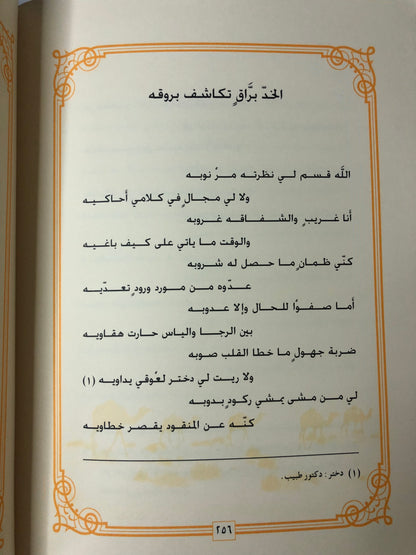 الخدّ برَّاقٍ تكاشف بروقه
اللَّه قسم لي نظرته مرّ نوبه
ولا لي مجالٍ في كلامي أحاكيه
أنا غريبٍ والشفاقه غروبه
والوقت ما ياتي على كيف باغيه
كنّي ظمانٍ ما حصل له شروبه
عدّوه من مورد ورودٍ تعدّيه
أما صفوًا للحال وإلا عدوبه
بين الرجا والياس حارت هقاويه
ضربة جهولٍ ما خطا القلب صوبه
ولا ريت لي دختر لعوقي يداويه (١)
لي من مشى يمشي ركودٍ بدوبه
كنّه عن المنقود يقصر خطاويه
(١) دختر : دكتور طبيب.
٢٥٦